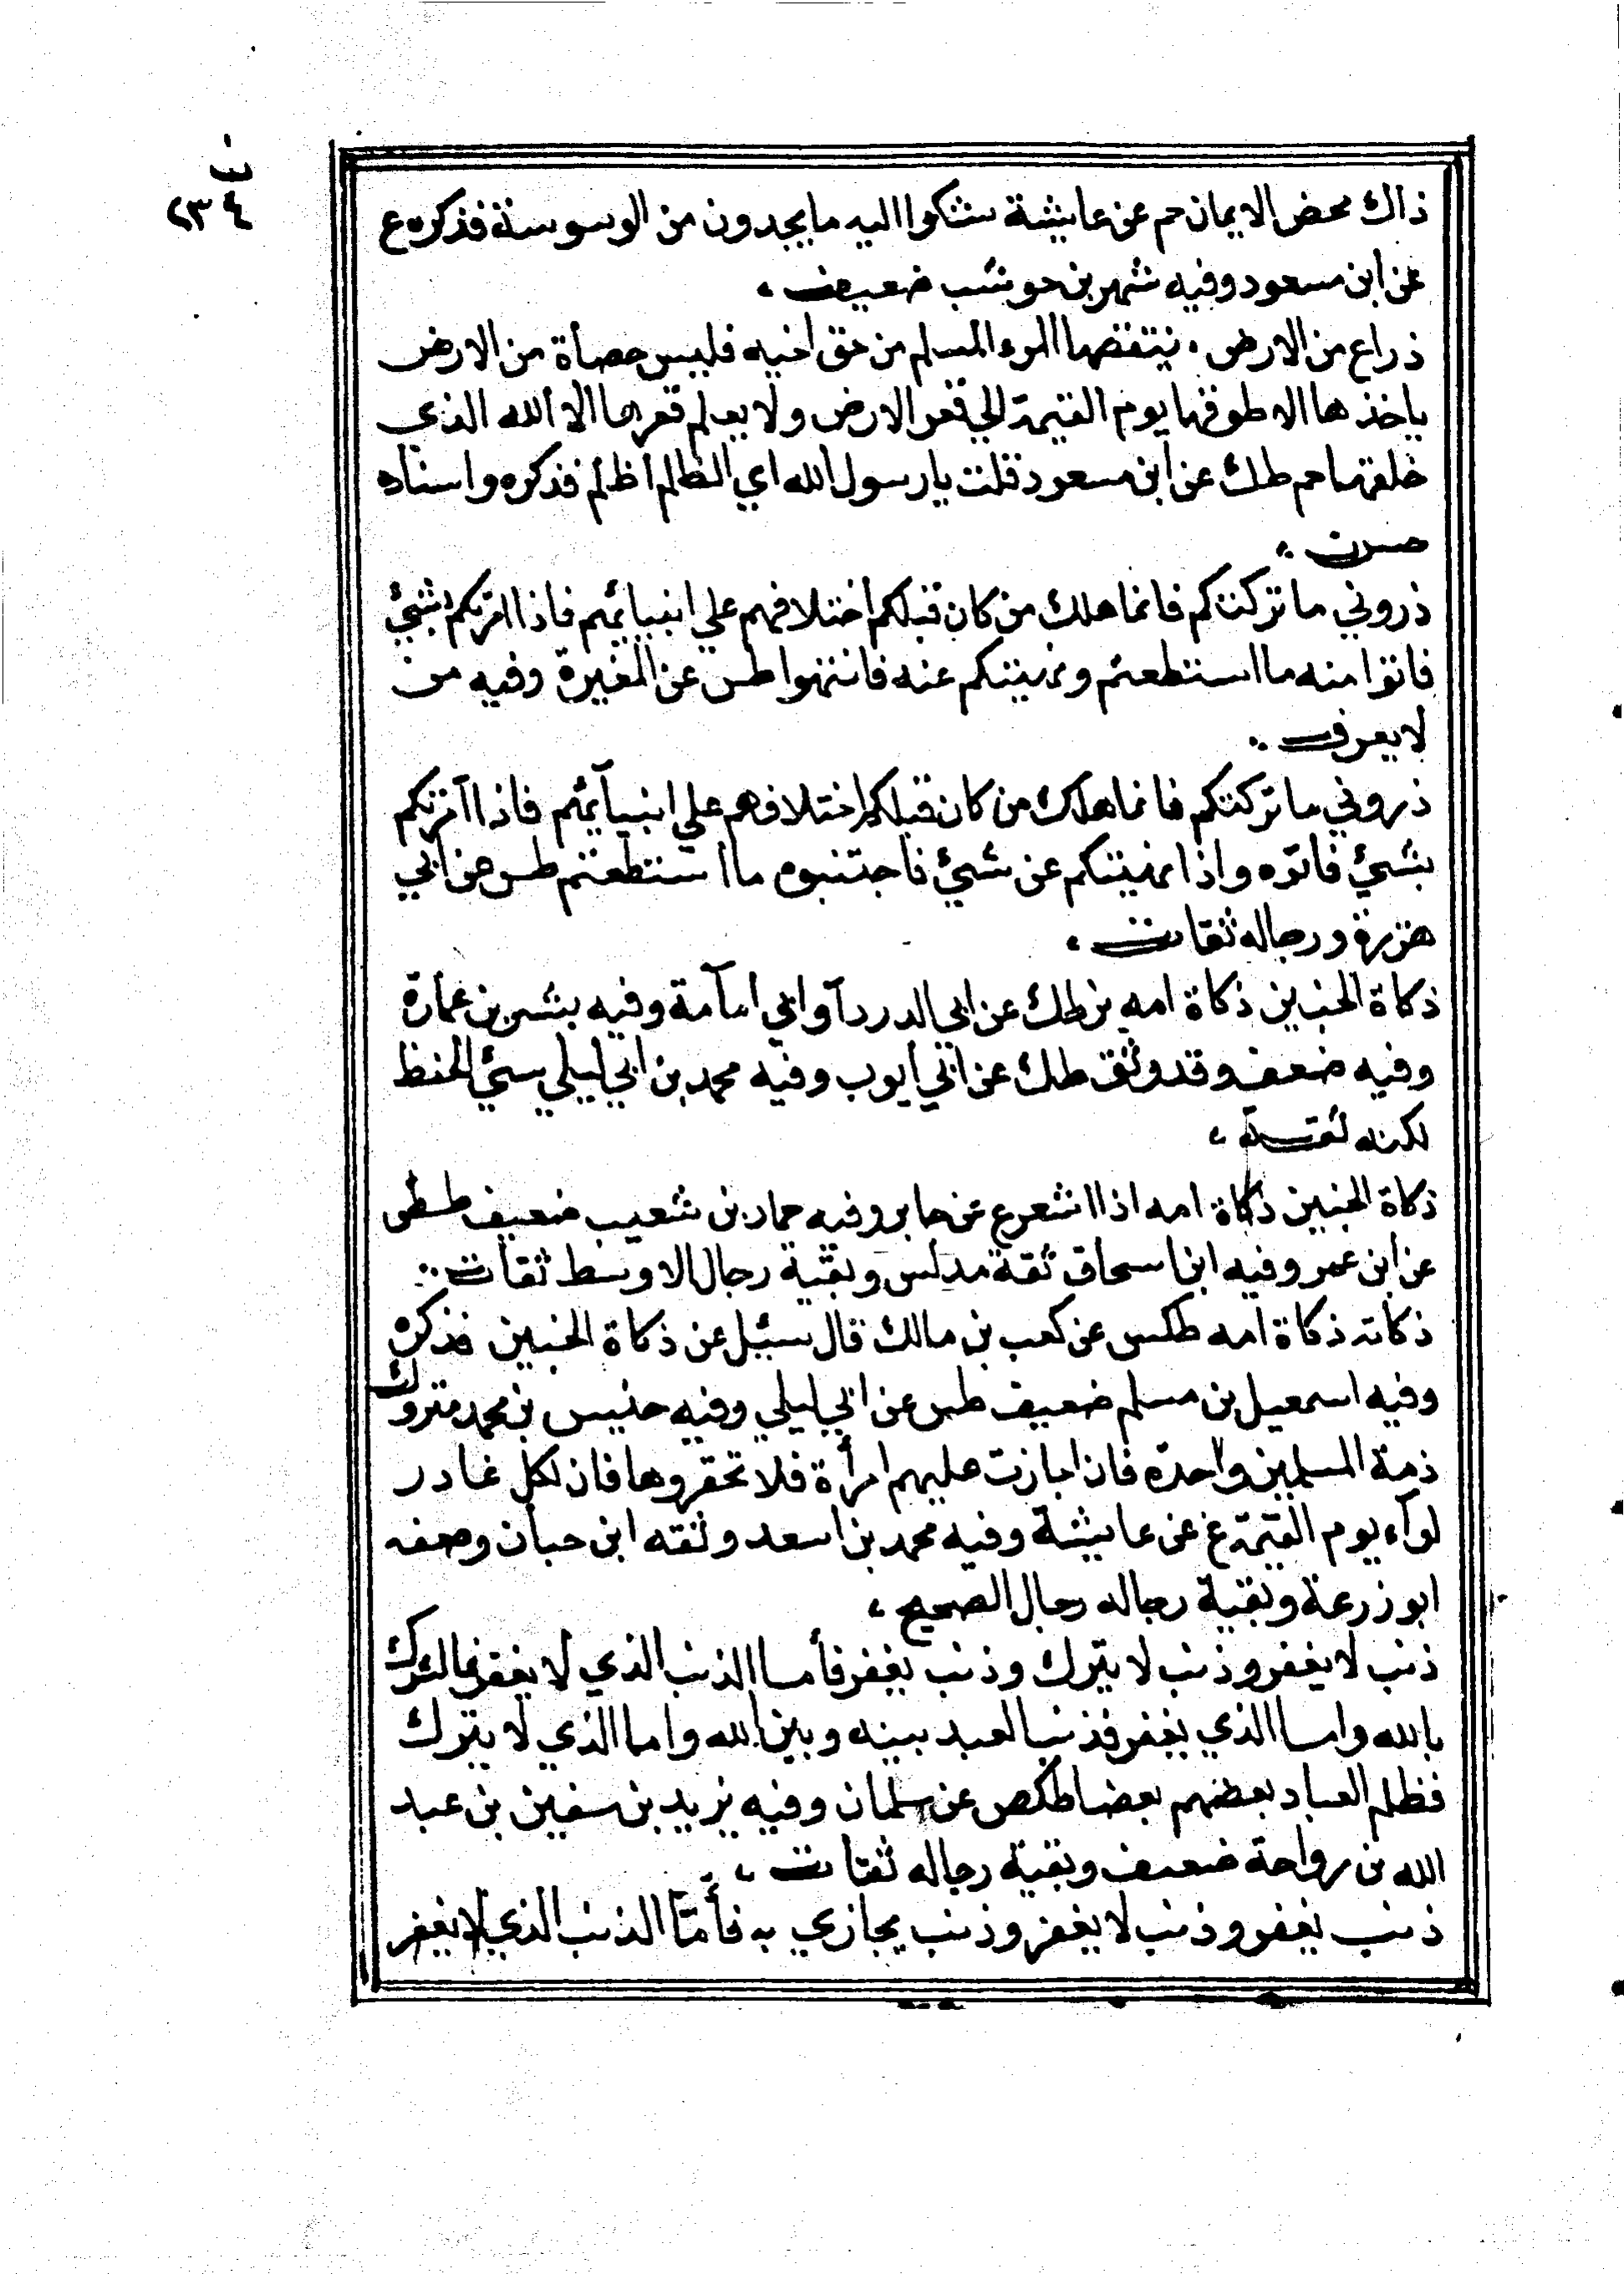 ن
٢٣٤
ذاك محض الايمان حم عن عايشة شكوا اليه ما يجدون من الوسوسة فذكره ع
عن ابن مسعود وفيه شهر بن حوشب ضعيف ،
ذراع من الارض . ينتقصها المرء المسلم من حق اخيه فليس حصاة من الارض
ياخذها الا طوقها يوم القيمة الي قعر الارض ولا يعلم قعرها الا الله الذي
خلقها حم طك عن ابن مسعود قلت يا رسول الله اي الظلم أظلم فذكره واسناده
حسن ؞
ذروني ما تركتكم فانما هلك من كان قبلكم اختلافهم علي انبيائهم فاذا امرتكم بشئ
فاتوا منه ما استطعتم ونهيتكم عنه فانتهوا طس عن المغيرة وفيه من
لا يعرف ؞
ذروني ما تركتكم فانما هلك من كان قبلكم اختلافهم علي انبيآئهم فاذا آمرتكم
بشئ فاتوه واذا نهيتكم عن شئ فاجتنبوه ما استطعتم طس عن ابي
هريرة ورجاله ثقات ،
ذكاة الجنين ذكاة امه بز طك عن ابي الدردآ وابي امآمة وفيه بشر بن عمارة
وفيه ضعف وقد وثق طك عن ابي أيوب وفيه محمد بن ابي ليلي سئ الحفظ
لكنه ثقة ،
ذكاة الجنين ذكاة امه اذا اشعر ع عن جابر وفيه حماد بن شعيب ضعيف طسطص
عن ابن عمر وفيه ابن اسحاق ثقة مدلس وبقية رجال الاوسط ثقات ؞
ذكاته ذكاة امه طكس عن كعب بن مالك قال سئيل عن ذكاة الجنين فذكره
وفيه اسمعيل بن مسلم ضعيف طس عن ابي ليلي وفيه حنيس بن محمد متروك
ذمة المسلمين واحدة فان اجازت عليهم امرأة فلا تحقروها فان لكل غادر
لوآء يوم القيمة ع عن عايشة وفيه محمد بن اسعد وثقه ابن حبان وضعفه
ابو زرعة وبقية رجاله رجال الصحيح ،
ذنب لا يغفر وذنب لا يترك وذنب يغفر فأما الذنب الذي لا يغفر فالشرك
بالله واما الذي يغفر فذنب العبد بينه وبين الله واما الذي لا يترك
فظلم العباد بعضهم بعضا طكص عن سلمان وفيه يزيد بن سفين بن عبد
الله بن رواحة ضعيف وبقية رجاله ثقات ،
ذنب يغفر وذنب لا يغفر وذنب يجازي به فأمّا الذنب الذي لا يغفر